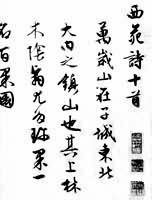 西苑詩十首
萬歲山在子城東北
大内之鎮山也其上林
木陰翳尤多珎果一
名百果園